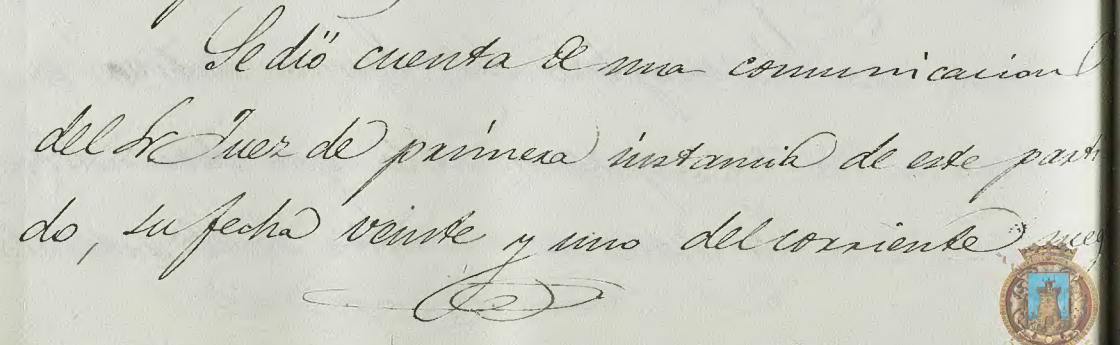 Se dió cuenta de una comunicacion
del Sr Juez de primera instancia de este parti
do, su fecha veinte y uno del corriente